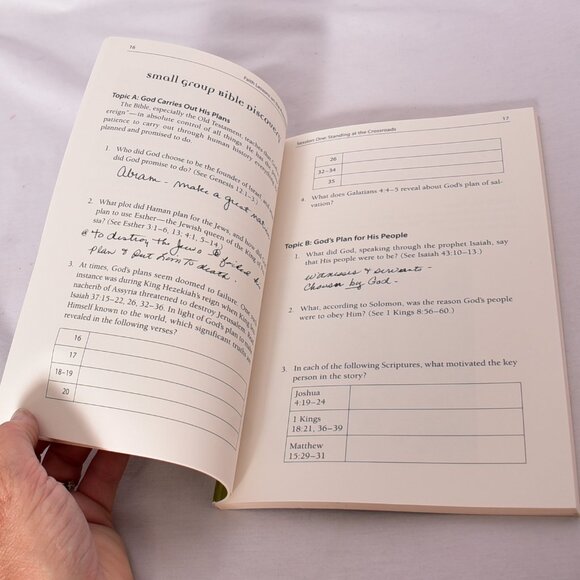 16
Faith Lessons on
small group Bible Discovery
Topic A: God Carries Out His Plans
The Bible, especially the Old Testament, teaches that
ereign"—in absolute control of all things. He has the
patience to carry out through human history everything
planned and promised to do.
1. Who did God choose to be the founder of Israel, and
did God promise to do? (See Genesis 12:1–3.)
Abram - make a great nation
2. What plot did Haman plan for the Jews, and how did
plan to use Esther—the Jewish queen of the King of
sia? (See Esther 3:1–6, 13; 4:1, 5–14.)
to destroy the Jews
plan & put him to death -
3. At times, God's plans seem doomed to failure. One
instance was during King Hezekiah's reign when King
nacherib of Assyria threatened to destroy Jerusalem.
Isaiah 37:15–22, 26, 32–36. In light of God's plan to
Himself known to the world, which significant truths
revealed in the following verses?
16
17
18–19
20
Session One: Standing at the Crossroads
17
26
32–34
35
4. What does Galatians 4:4–5 reveal about God's plan of sal-
vation?
Topic B: God's Plan for His People
1. What did God, speaking through the prophet Isaiah, say
that His people were to be? (See Isaiah 43:10–13.)
witnesses & servants -
chosen by God -
2. What, according to Solomon, was the reason God's people
were to obey Him? (See 1 Kings 8:56–60.)
3. In each of the following Scriptures, what motivated the key
person in the story?
Joshua
4:19–24
1 Kings
18:21, 36–39
Matthew
15:29–31